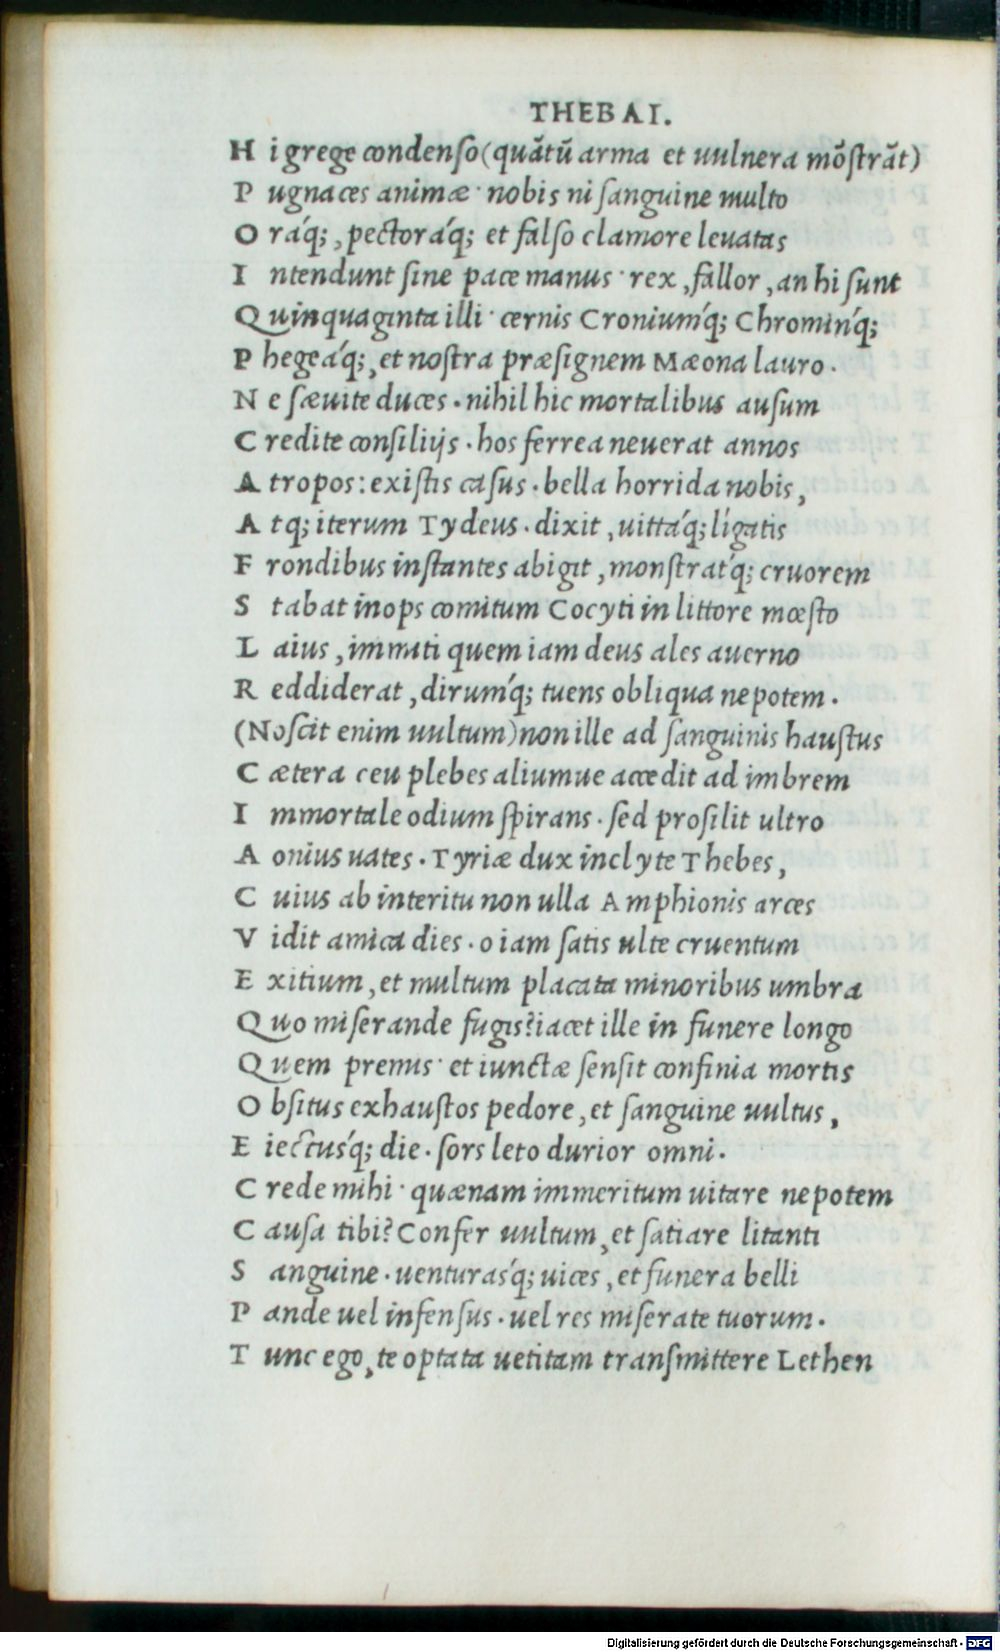 THEBAI.
H i grege condenſo (quãtũ arma et uulnera mõſtrãt)
P ugnaces animæ· nobis ni ſanguine multo
O rá́q;, pectorá́q; et falſo clamore leuatas
I ntendunt ſine pace manus· rex, fallor, an hi ſunt
Quinquaginta illi· cernis Croniumq́; Chrominq́;
P hegeáq́;, et noſtra præſignem Mæona lauro.
N e ſæuite duces. nihil hic mortalibus auſum
C redite conſilijs. hos ferrea neuerat annos
A tropos: exiſtis caſus. bella horrida nobis,
A tq; iterum Tydeus. dixit, uittáq́; ligatis
F rondibus inſtantes abigit, monſtratq́; cruorem
S tabat inops comitum Cocyti in littore mœſto
L aius, immiti quem iam deus ales auerno
R eddiderat, dirumq́; tuens obliqua nepotem.
(Noſcit enim uultum) non ille ad ſanguinis hauſtus
C ætera ceu plebes aliumue accedit ad imbrem
I mmortale odium ſpirans. ſed proſilit ultro
A onius uates. Tyriæ dux inclyte Thebes,
C uius ab interitu non ulla Amphionis arces
V idit amica dies. o iam ſatis ulte cruentum
E xitium, et multum placata minoribus umbra
Quo miſerande fugis? iacet ille in funere longo
Quem premis· et iunctæ ſenſit confinia mortis
O bſitus exhauſtos pedore, et ſanguine uultus,
E iectusq́; die. ſors leto durior omni.
C rede mihi· quænam immeritum uitare nepotem
C auſa tibi? Confer uultum, et ſatiare litanti
S anguine. uenturasq́; uices, et funera belli
P ande uel infenſus. uel res miſerate tuorum.
T unc ego, te optata uetitam tranſmittere Lethen
Digitalisierung gefördert durch die Deutsche Forschungsgemeinschaft - DFG